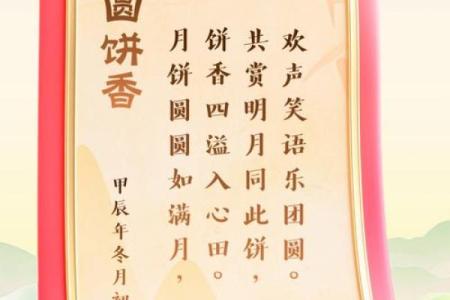 圆饼香
甲辰年冬月
月饼圆圆如满月，
饼香四溢入心田。
共赏明月同此饼，
欢声笑语乐团圆。